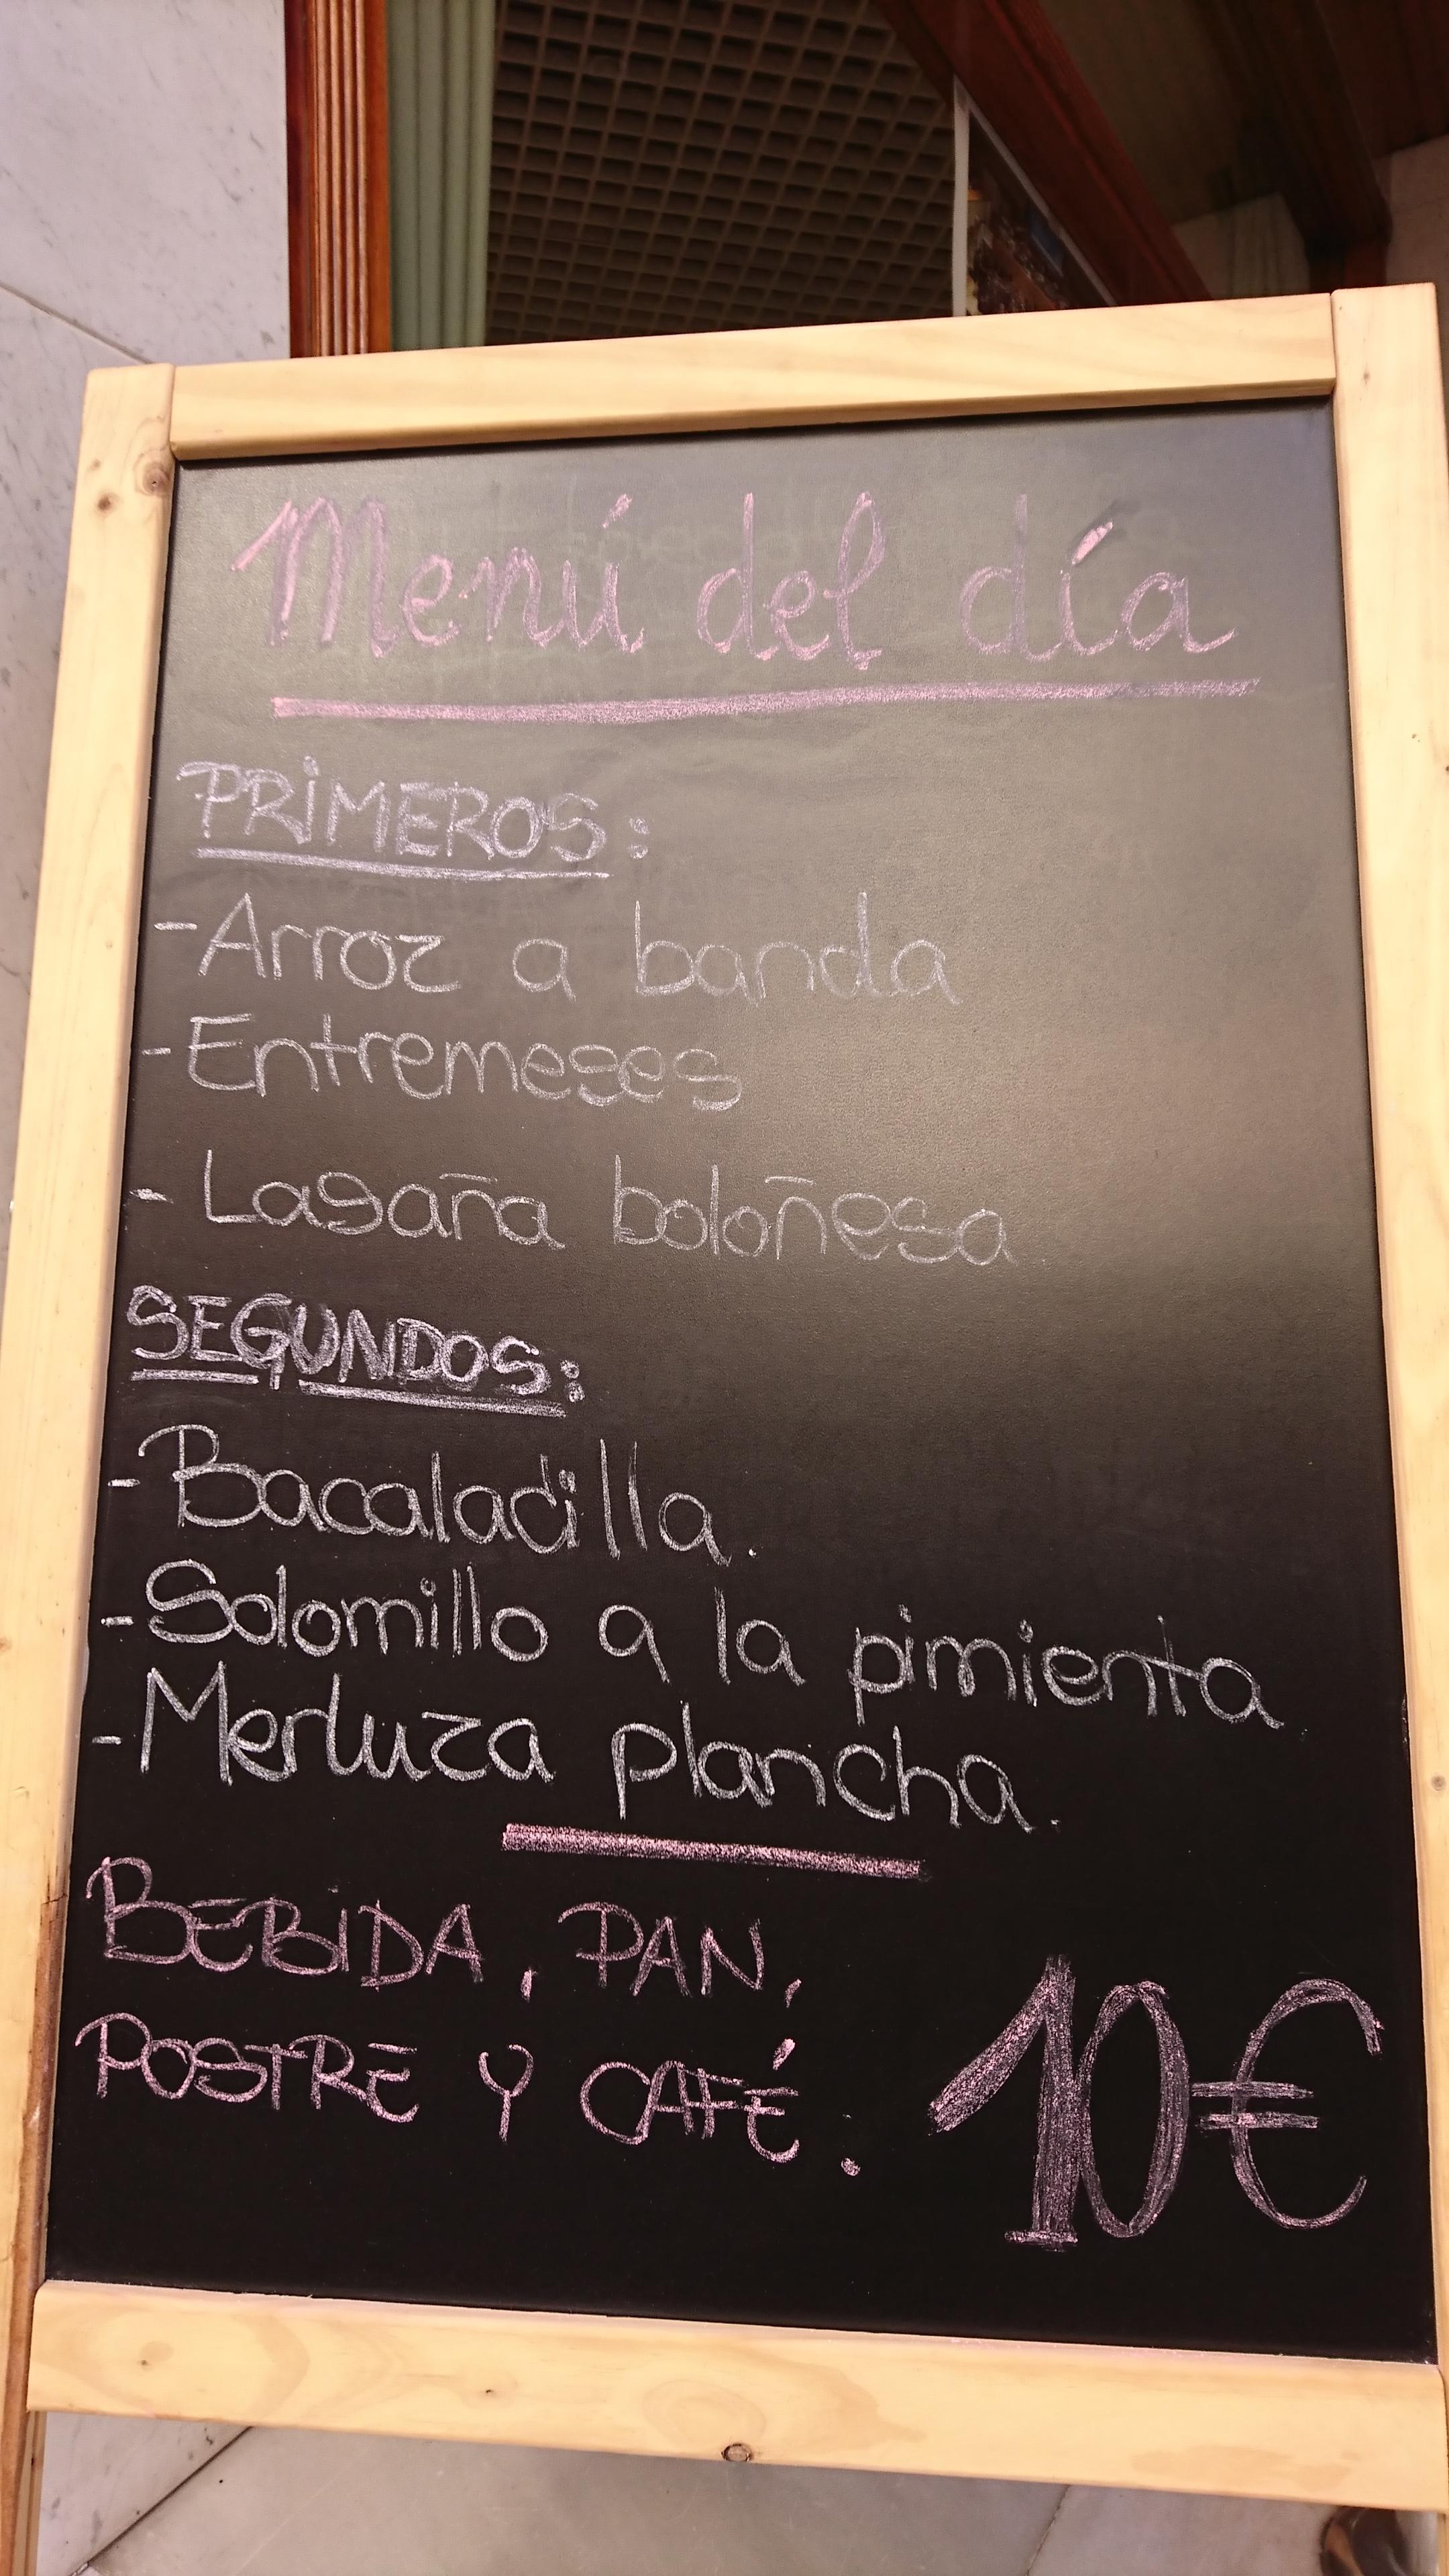 Menú del día
PRIMEROS:
- Arroz a banda
- Entremeses
- Lasaña boloñesa
SEGUNDOS:
- Bacaladilla.
- Solomillo a la pimienta
- Merluza plancha.
BEBIDA, PAN,
POSTRE Y CAFÉ. 10€